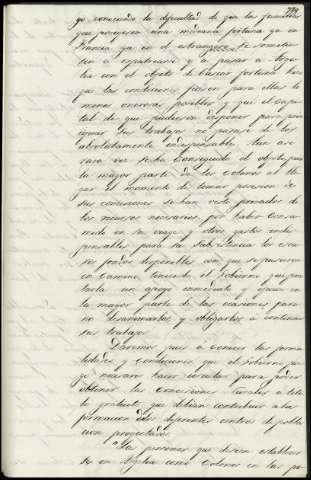 go conocida la dificultad de que las familias
que poseyesen una mediana fortuna ya en
Francia ya en el estrangero se sometie
sen á espatriarse y á pasar á Arge
lia con el objeto de buscar fortuna hizo
que las condiciones fuesen para ellos lo
menos onerosas posibles y que el capi
tal de que pudiesen disponer para prin
cipiar sus trabajos no pasase de lo
absolutamente indispensable
rara vez se ha conseguido el objeto pues
la mayor parte de los colonos al lle
gar el momento de tomar posesion de
sus concesiones se han visto privados de
los recursos necesarios por haber consu
mido en su viage y otros gastos indis
pensables para su subsistencia los esca
sos fondos disponibles con que se pusieron
en camino, teniendo el Gobierno que pres
tarles un apoyo inmediato y eficaz en
la mayor parte de las ocasiones para
no desanimarlos y obligarlos á continuar
sus trabajos.
Daremos pues á conocer las forma
lidades y condiciones que el Gobierno juz
gó necesario hacer circular para poder
obtener las concesiones rurales á titu
lo gratuito que debian contribuir á la
formacion de los diferentes centros de pobla
cion proyectados.
"Las personas que deseen establecer
se en Argelia como Colonos en las po